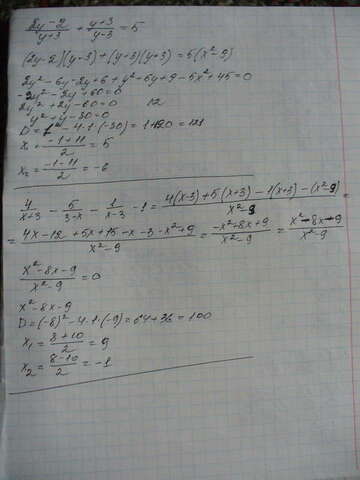 (2y-2)/(y+3) + (y+3)/(y-3) = 5
(2y-2)(y-3)+(y+3)(y+3)=5(x²-9)
2y²-6y-2y+6+y²+6y+9-5x²+45=0
-2y²-2y+60=0
2y²+2y-60=0 12
y²+y-30=0
D=1-4·1·(-30)=1+120=121
x₁=(-1+11)/2=5
x₂=(-1-11)/2=-6
4/(x+3) - 5/(3-x) - 1/(x-3) - 1 = (4(x-3)+5(x+3)-1(x+3)-(x²-9))/(x²-9) =
= (4x-12+5x+15-x-3-x²+9)/(x²-9) = (-x²+8x+9)/(x²-9) = (x²-8x-9)/(x²-9)
(x²-8x-9)/(x²-9)=0
x²-8x-9
D=(-8)²-4·1·(-9)=64+36=100
x₁=(8+10)/2=9
x₂=(8-10)/2=-1